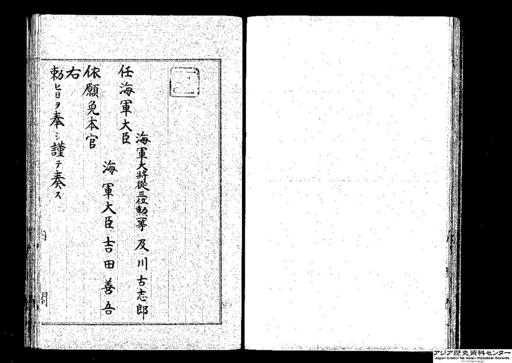 海軍大将従三位勲一等 及川古志郎
任海軍大臣
海軍大臣 吉田善吾
依願免本官
右
勅旨ヲ奉シ謹テ奏ス
内 閣
アジア歴史資料センター
Japan Center for Asian Historical Records